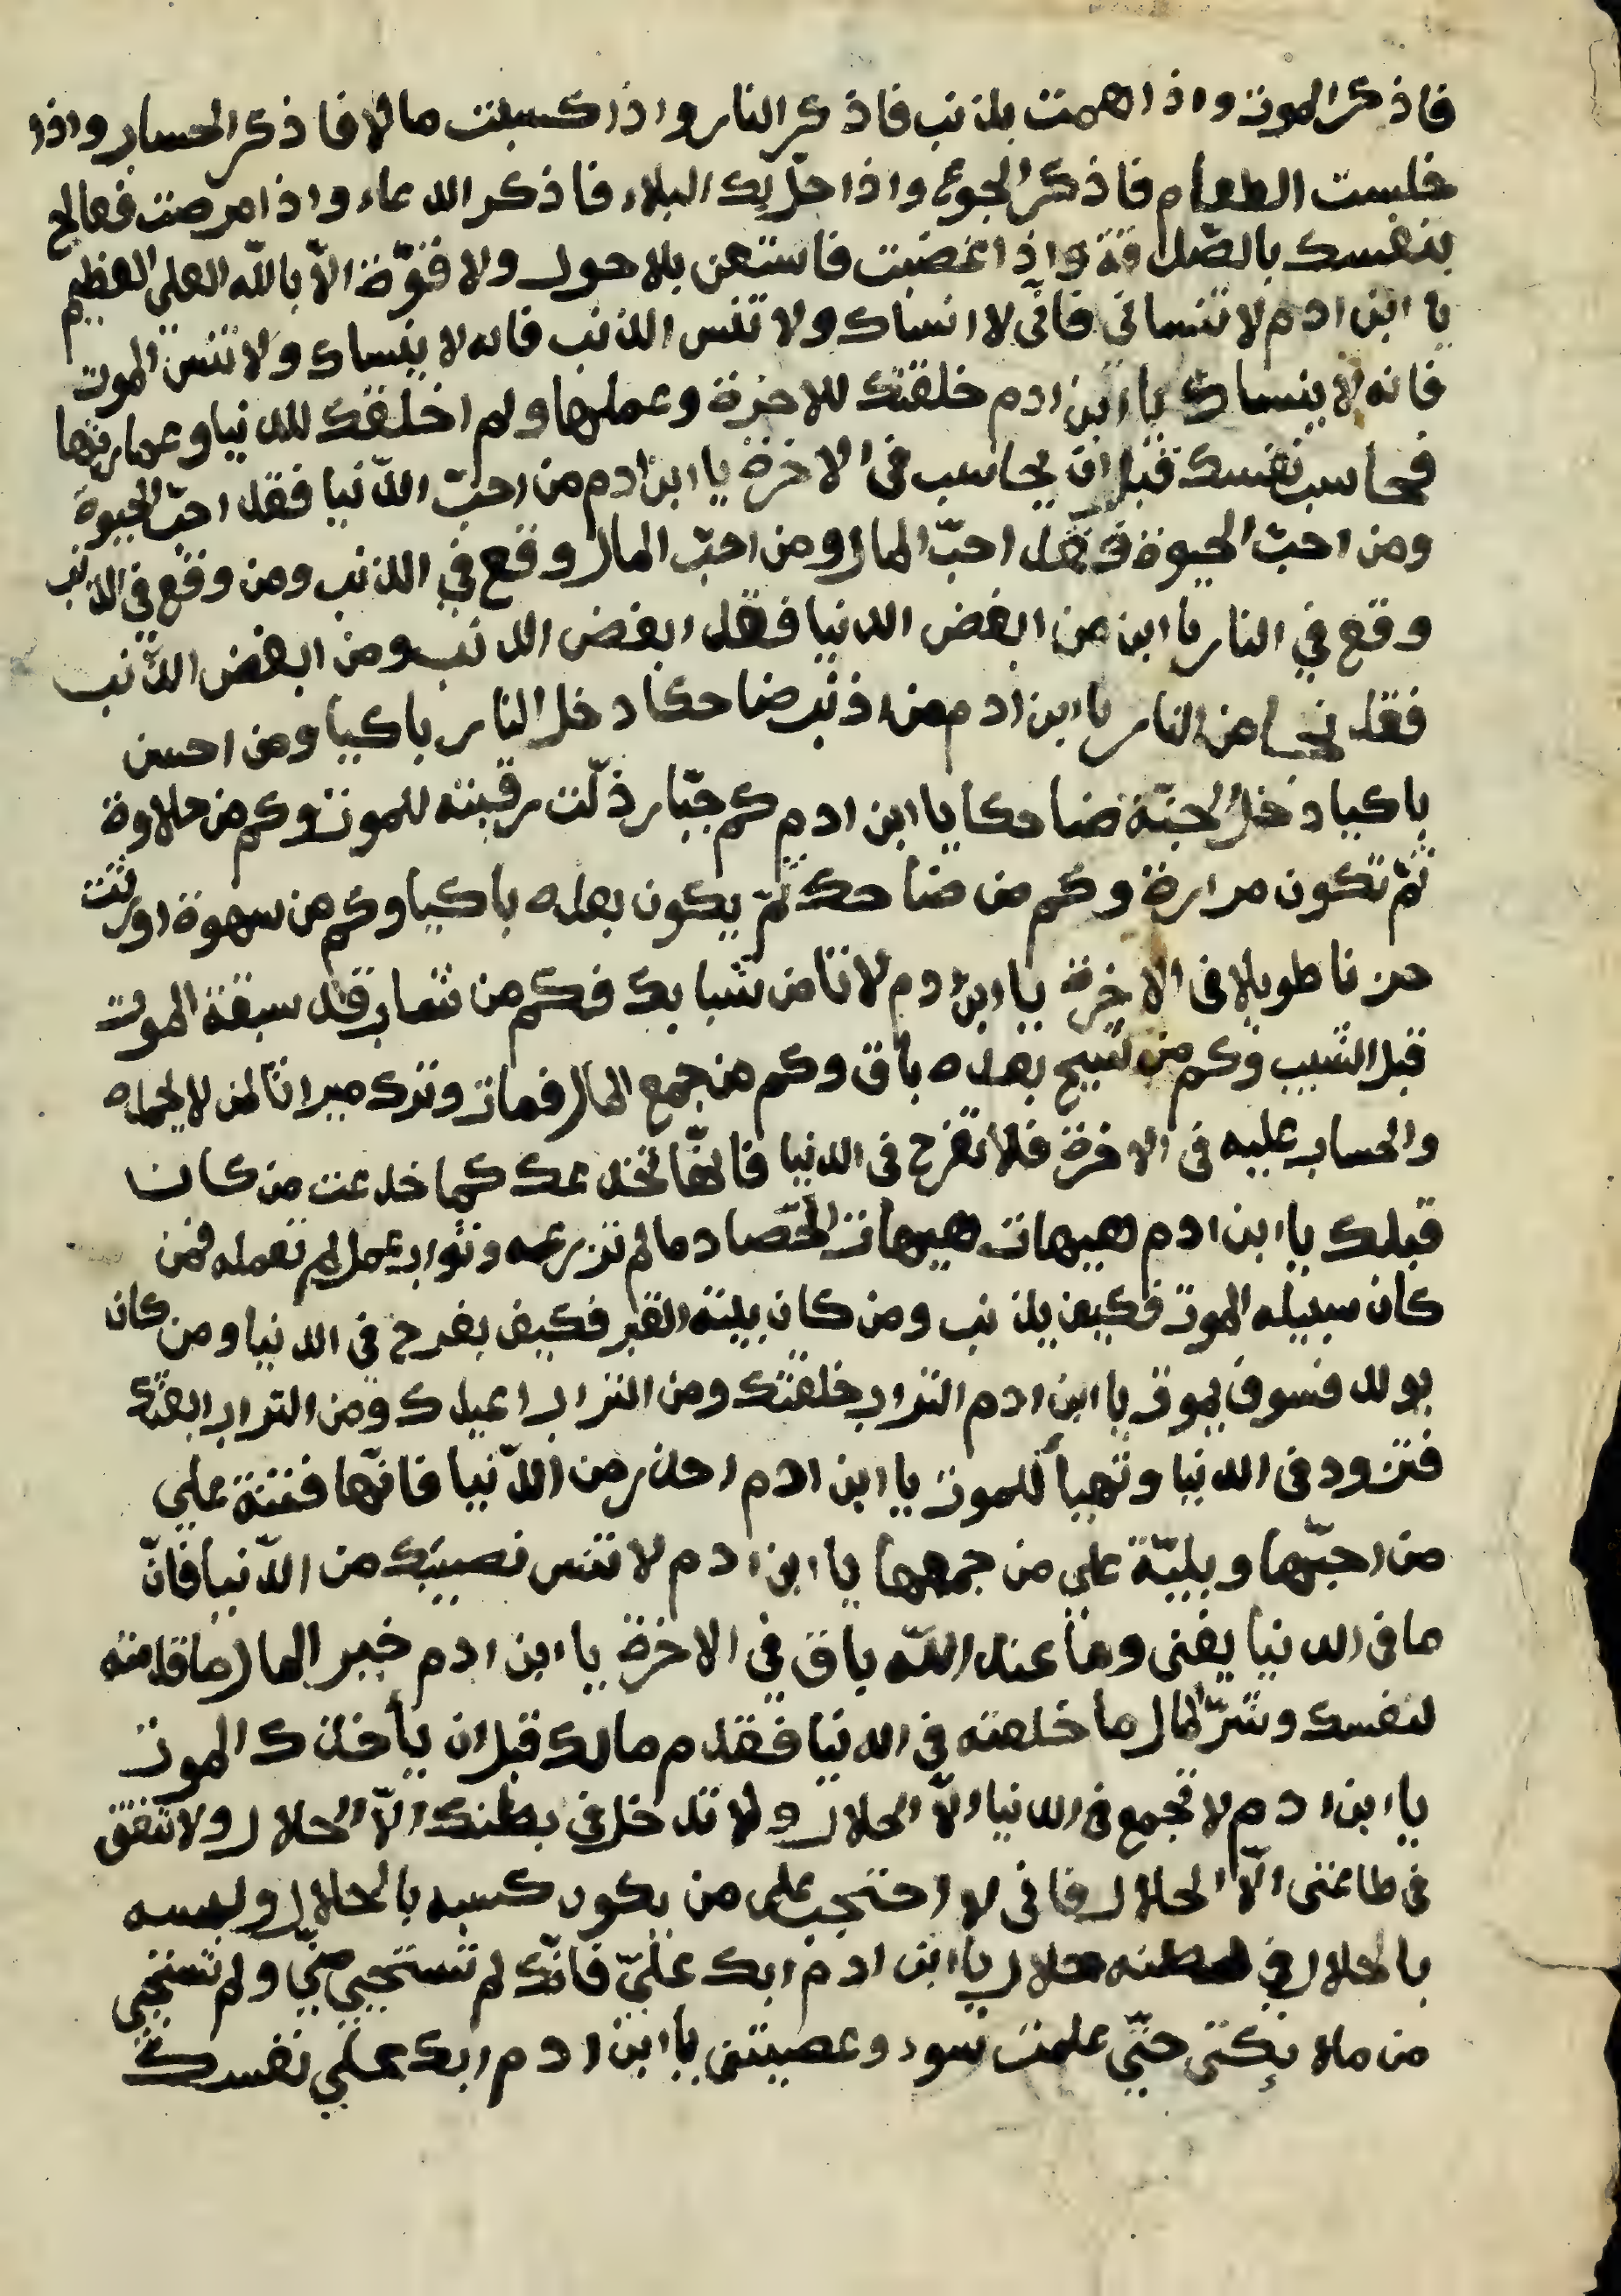 فاذكر الموت واذا هممت بلذنب فاذكر النار واذا كسبت مالا فاذكر الحساب واذا
جلست الطعام فاذكر الجوع واذا حلّ بك البلاء فاذكر الدعاء واذا مرضت فعالج
بنفسك بالصّدقة واذا غضبت فاستعن بلاحول ولا قوّة الاّ بالله العلي العظيم
يا ابن ادم لا تنساني فانّي لا انساك ولا تنس الذنب فانه لا ينساك ولا تنس الموت
فانه لا ينساك يا ابن ادم خلقتك للاخرة وعملها ولم اخلقك للدنيا وعمارتها
فحاسب نفسك قبل ان يحاسب في الاخرة يا ابن ادم من احبّ الدّنيا فقد احبّ الحيوة
ومن احبّ الحيوة فقد احبّ المال ومن احبّ المال وقع في الذنب ومن وقع في الذنب
وقع في النار يا ابن من ابغض الدنيا فقد ابغض الذنب ومن ابغض الذّنب
فقد نجا من النار يا ابن ادم من اذنب ضاحكا دخل النار باكيا ومن احسن
باكيا دخل الجنّة ضاحكا يا ابن ادم كم جبّار ذلّت رقبته للموت وكم من حلاوة
ثمّ تكون مرارة وكم من ضاحك ثمّ يكون بعده باكيا وكم من سهوة اورثت
حزنا طويلا في الاخرة يا ابن ادم لا تامن شبابك فكم من شاب قد سبقة الموت
قبل الشيب وكم من شيخ بعده باق وكم من جمع المال فمات وترك ميراثا لمن لا يحمله
والحساب عليه في الاخرة فلا تفرح في الدنيا فانّها تخدعك كما خدعت من كان
قبلك يا ابن ادم هيهات هيهات الحصاد مالم تزرعه وثواب عمل لم تعمله فمن
كان سبيله الموت فكيف يذنب ومن كان بيته القبر فكيف يفرح في الدنيا ومن كان
يولد فسوف يموت يا ابن ادم التراب خلقتك ومن التراب اعيدك ومن التراب ابعثك
فتزود في الدنيا وتهيأ للموت يا ابن ادم احذر من الدّنيا فانّها فتنة علي
من احبّها وبليّة علي من جمعها يا ابن ادم لا تنس نصيبك من الدّنيا فانّ
ما في الدنيا يفنى وما عند الله باق في الاخرة يا ابن ادم خير المال ما قدمته
لنفسك وشرّ المال ما خلفته في الدنيا فقدم مالك قبل ان يأخذك الموت
يا ابن ادم لا تجمع في الدنيا الاّ الحلال ولا تدخل في بطنك الاّ الحلال ولا تنفق
في طاعتي الاّ الحلال فاني لا احتجب على من يكون كسبه بالحلال ولبسه
بالحلال في بطنه حلال يا ابن ادم ابك عليّ فانّك لم تستحيي منّي ولم تستحيي
من ملائكتي حتّي علمت سوء وعصيتني يا ابن ادم ابك علي نفسك